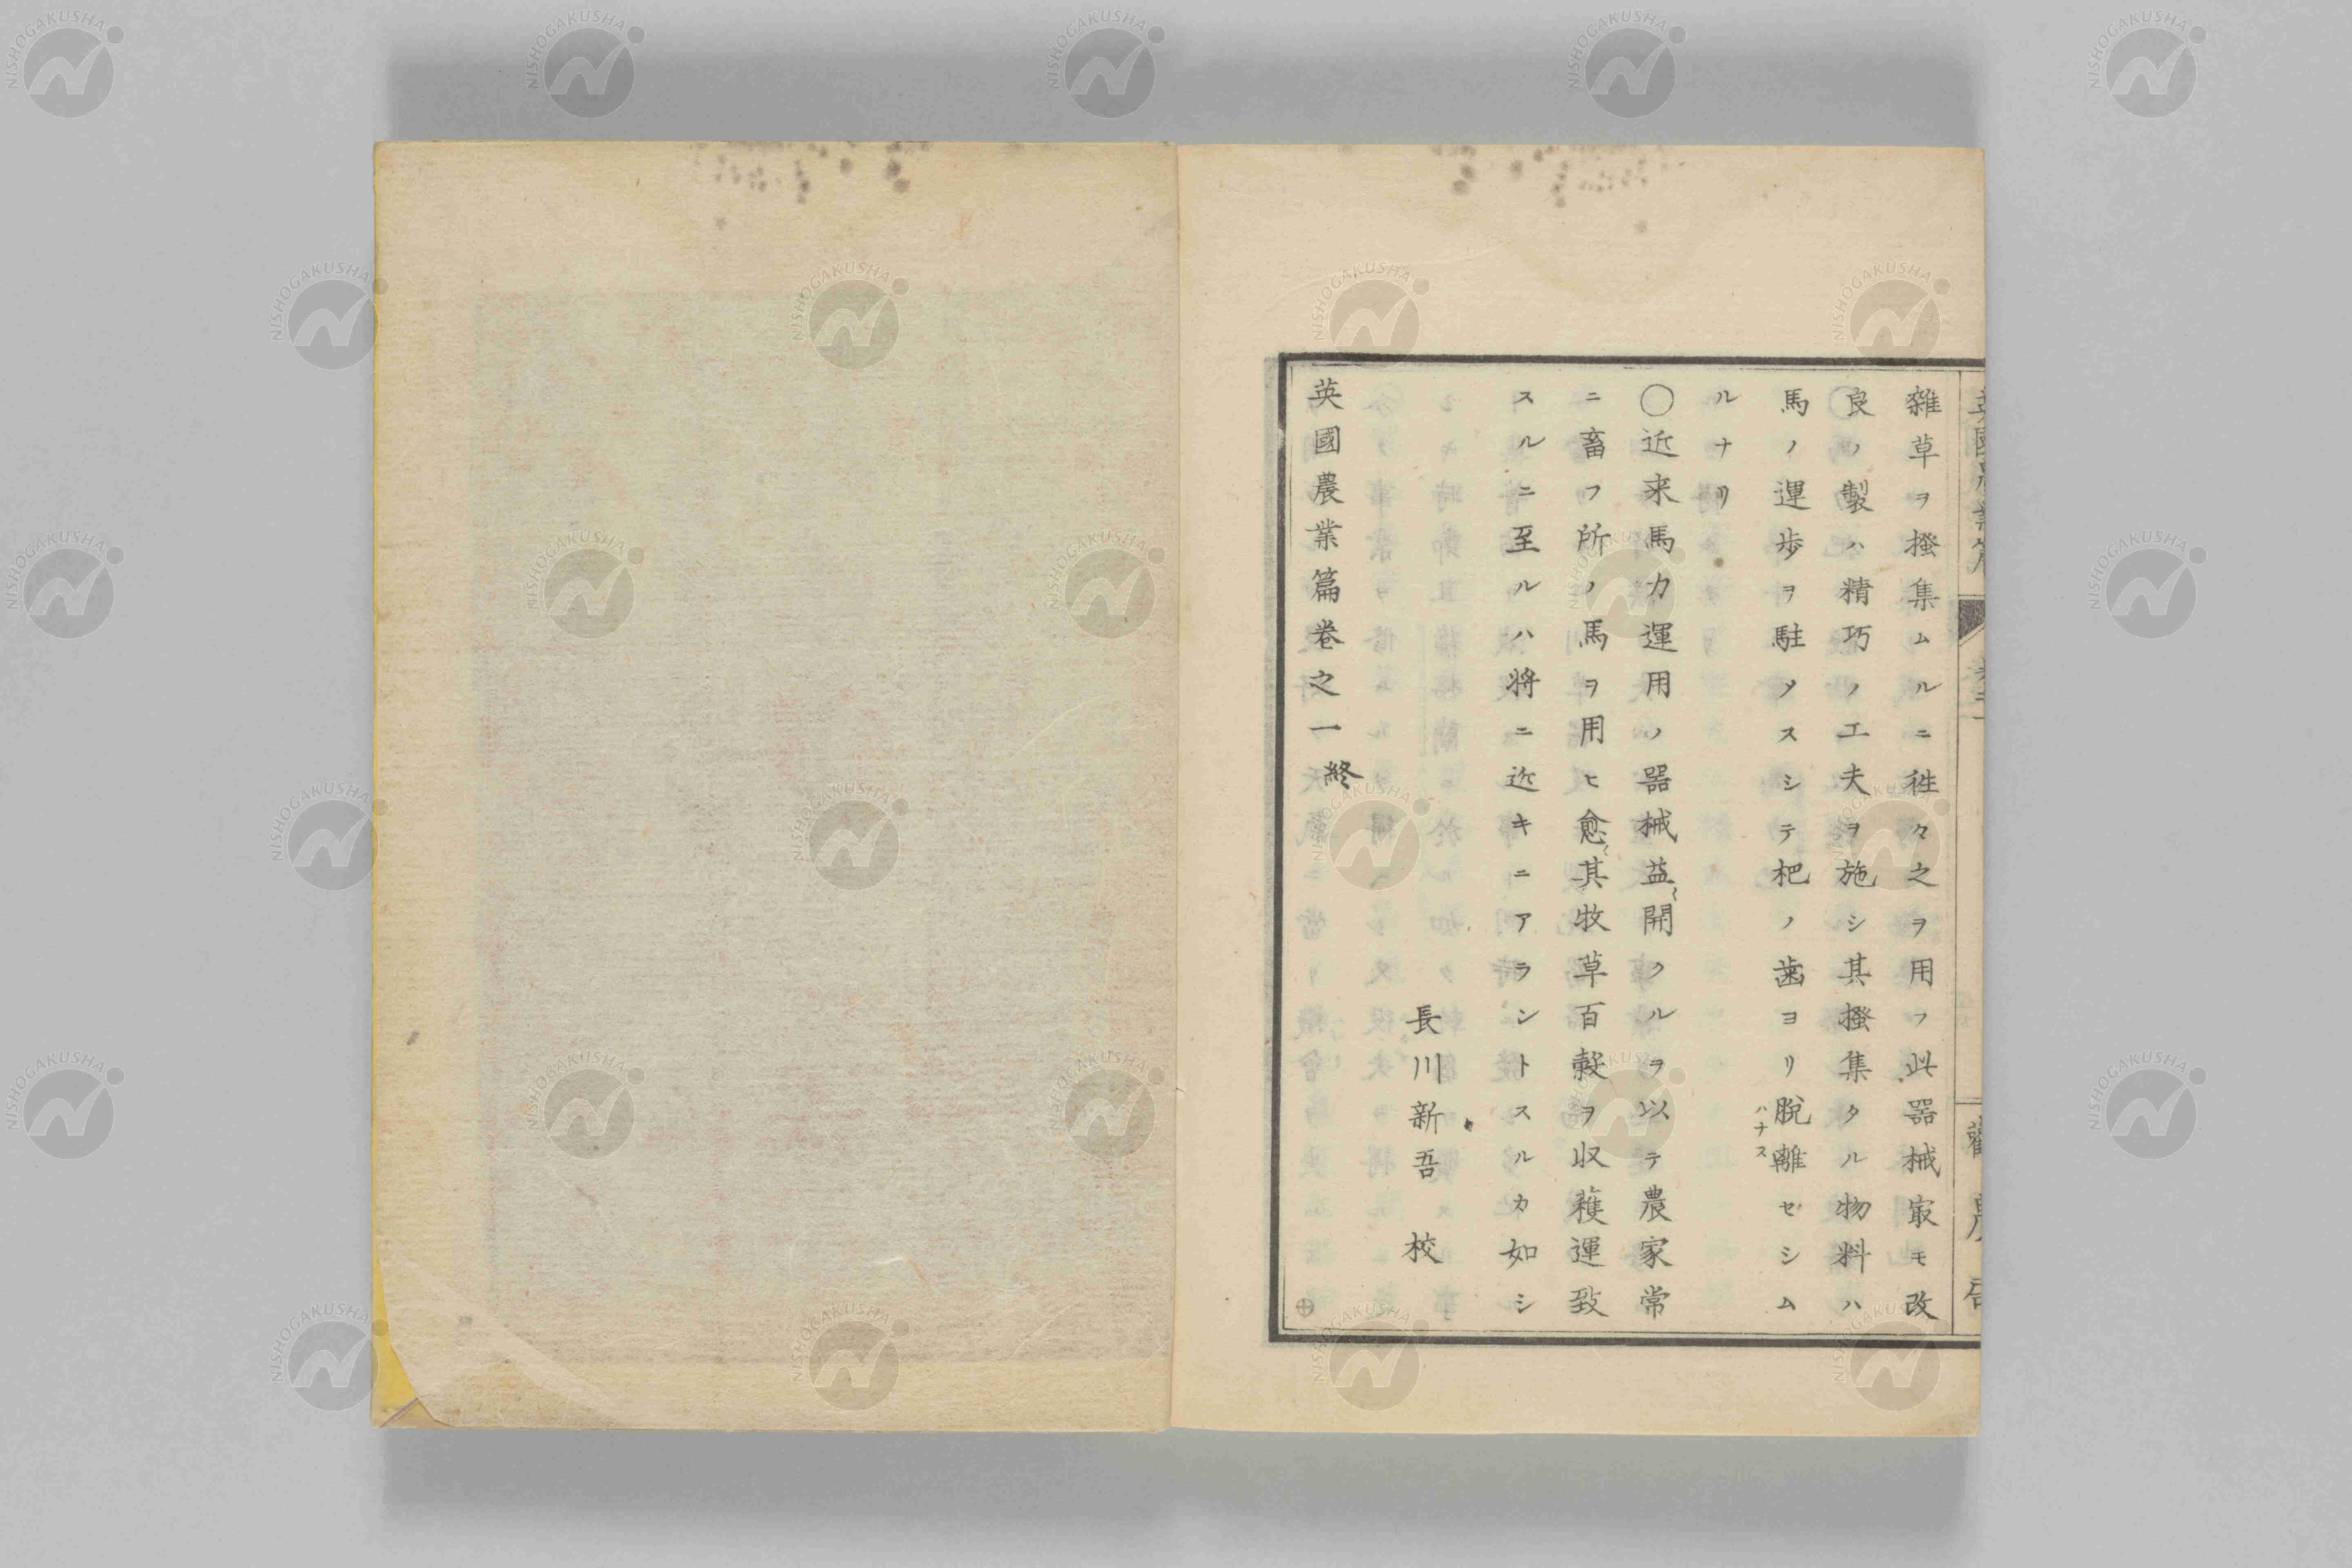 雜草ヲ搔集ムルニ徃々之ヲ用フ此器械㝡モ改
良ノ製ハ精巧ノ工夫ヲ施シ其搔集タル物料ハ
馬ノ運歩ヲ駐メスシテ杷ノ歯ヨリ脫離セシム
ハナス
ルナリ
〇近来馬力運用ノ器械益〻開クルヲ以テ農家常
ニ畜フ所ノ馬ヲ用ヒ愈〻其牧草百穀ヲ収穫運致
スルニ至ルハ将ニ近キニアラントスルカ如シ
長川新吾 校
英國農業篇卷之一終
NISHOGAKUSHA